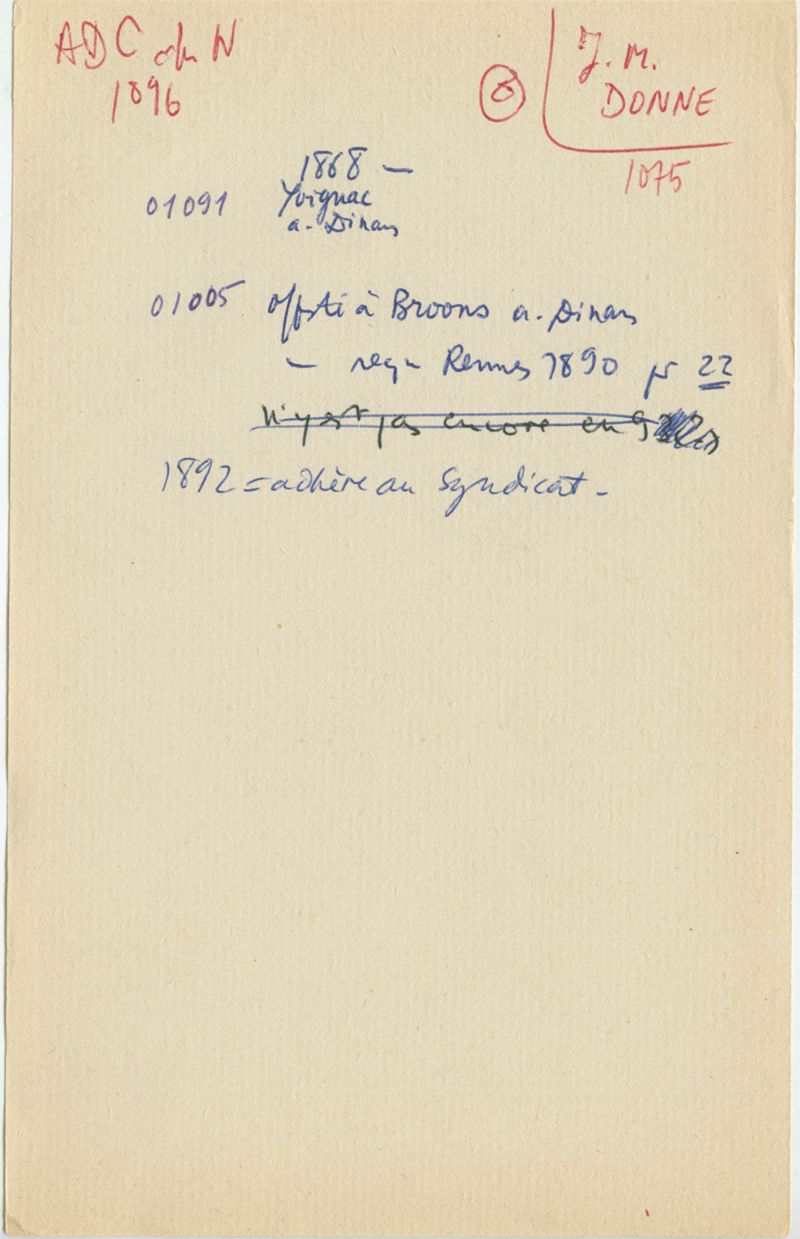 ADC du N
1896
6
J. M.
DONNE
1075
1868 –
01091 Yvignac
a. Dinan
01005 offsti à Broons a. Dinan
– reçu Rennes 1890 pr 22
n'y est pas encore en 9
1892 = adhère au Syndicat –